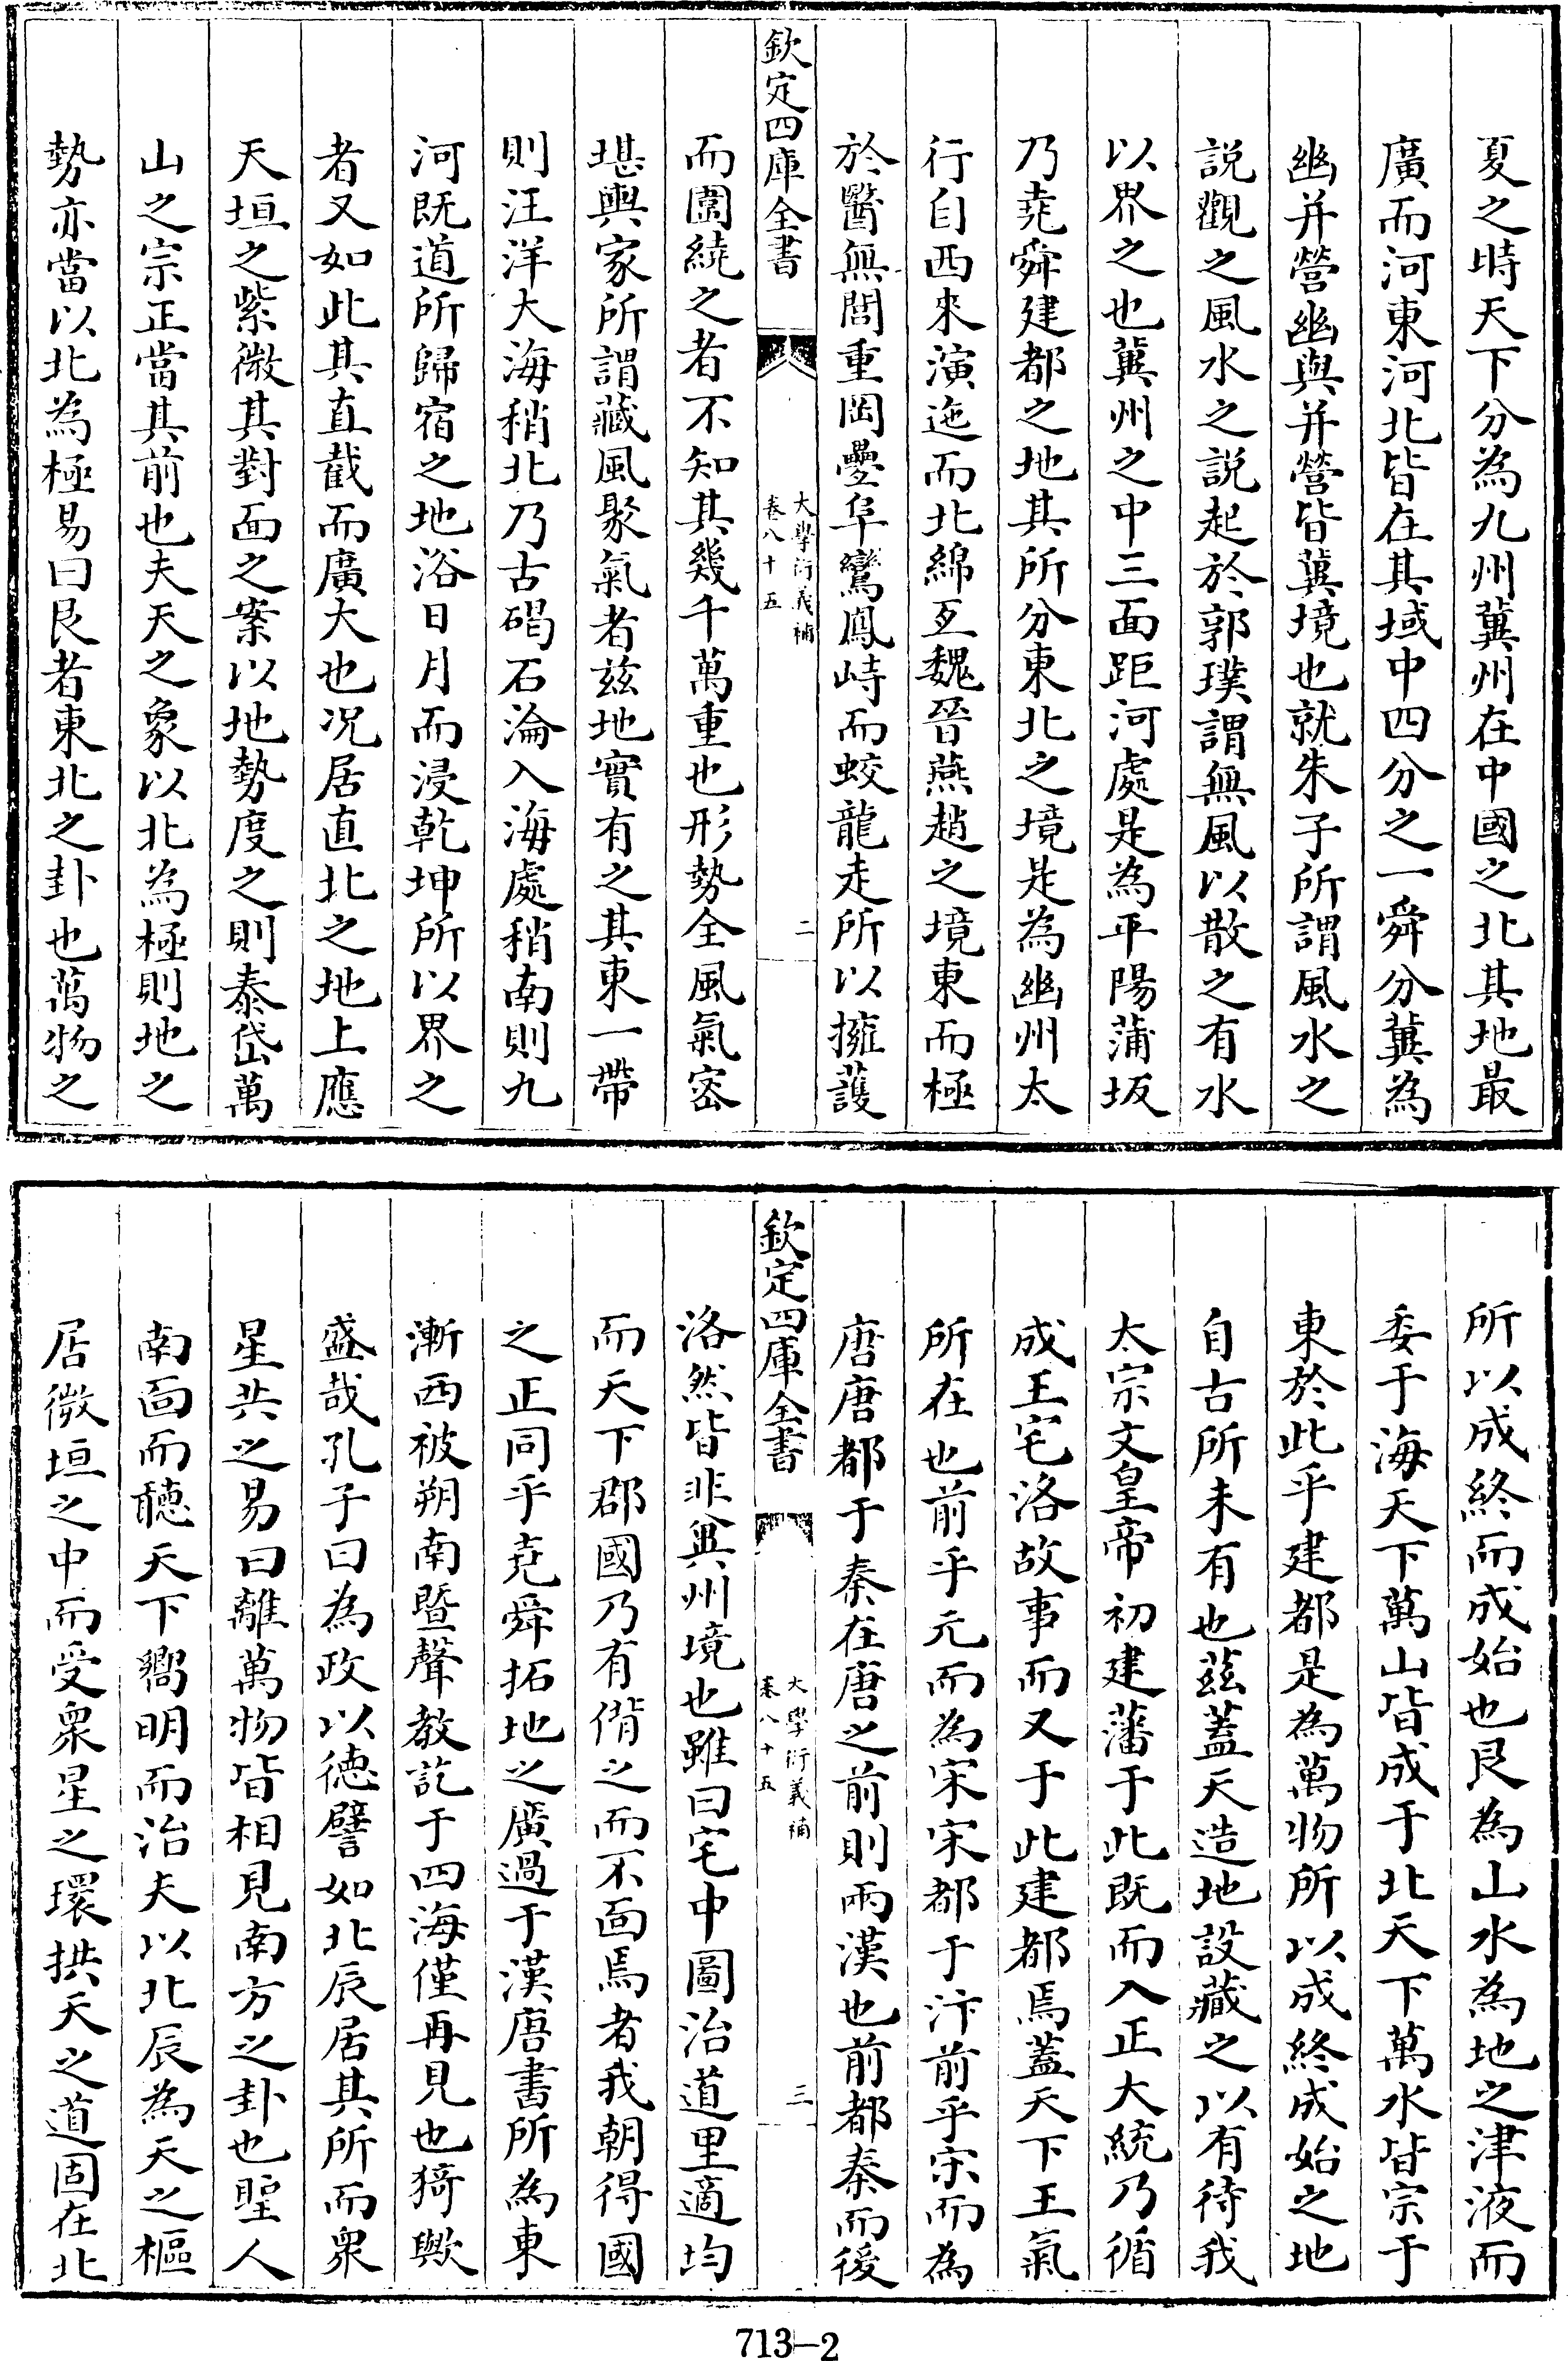 夏之時天下分為九州冀州在中國之北其地最
廣而河東河北皆在其域中四分之一舜分冀為
幽并營幽與并營皆冀境也就朱子所謂風水之
説觀之風水之説起於郭璞謂無風以散之有水
以界之也冀州之中三面距河處是為平陽蒲坂
乃堯舜建都之地其所分東北之境是為幽州太
行自西來演迤而北綿亙魏晉燕趙之境東而極
於醫無閭重岡疊阜鸞鳳峙而蛟龍走所以擁護
欽定四庫全書
大學衍義補
卷八十五
二
而圍繞之者不知其幾千萬重也形勢全風氣密
堪輿家所謂藏風聚氣者茲地實有之其東一帶
則汪洋大海稍北乃古碣石淪入海處稍南則九
河既道所歸宿之地浴日月而浸乾坤所以界之
者又如此其直截而廣大也况居直北之地上應
天垣之紫微其對面之案以地勢度之則泰岱萬
山之宗正當其前也夫天之象以北為極則地之
勢亦當以北為極易曰艮者東北之卦也萬物之
所以成終而成始也艮為山水為地之津液而
委于海天下萬山皆成于北天下萬水皆宗于
東於此乎建都是為萬物所以成終成始之地
自古所未有也茲蓋天造地設藏之以有待我
太宗文皇帝初建藩于此既而入正大統乃循
成王宅洛故事而又于此建都焉蓋天下王氣
所在也前乎元而為宋宋都于汴前乎宋而為
唐唐都于秦在唐之前則兩漢也前都秦而後
欽定四庫全書
大學衍義補
卷八十五
三
洛然皆非冀州境也雖曰宅中圖治道里適均
而天下郡國乃有偝之而不面焉者我朝得國
之正同乎堯舜拓地之廣過于漢唐書所為東
漸西被朔南暨聲教訖于四海僅再見也猗歟
盛哉孔子曰為政以德譬如北辰居其所而衆
星共之易曰離萬物皆相見南方之卦也聖人
南面而聽天下嚮明而治夫以北辰為天之樞
居微垣之中而受衆星之環拱天之道固在北
713-2